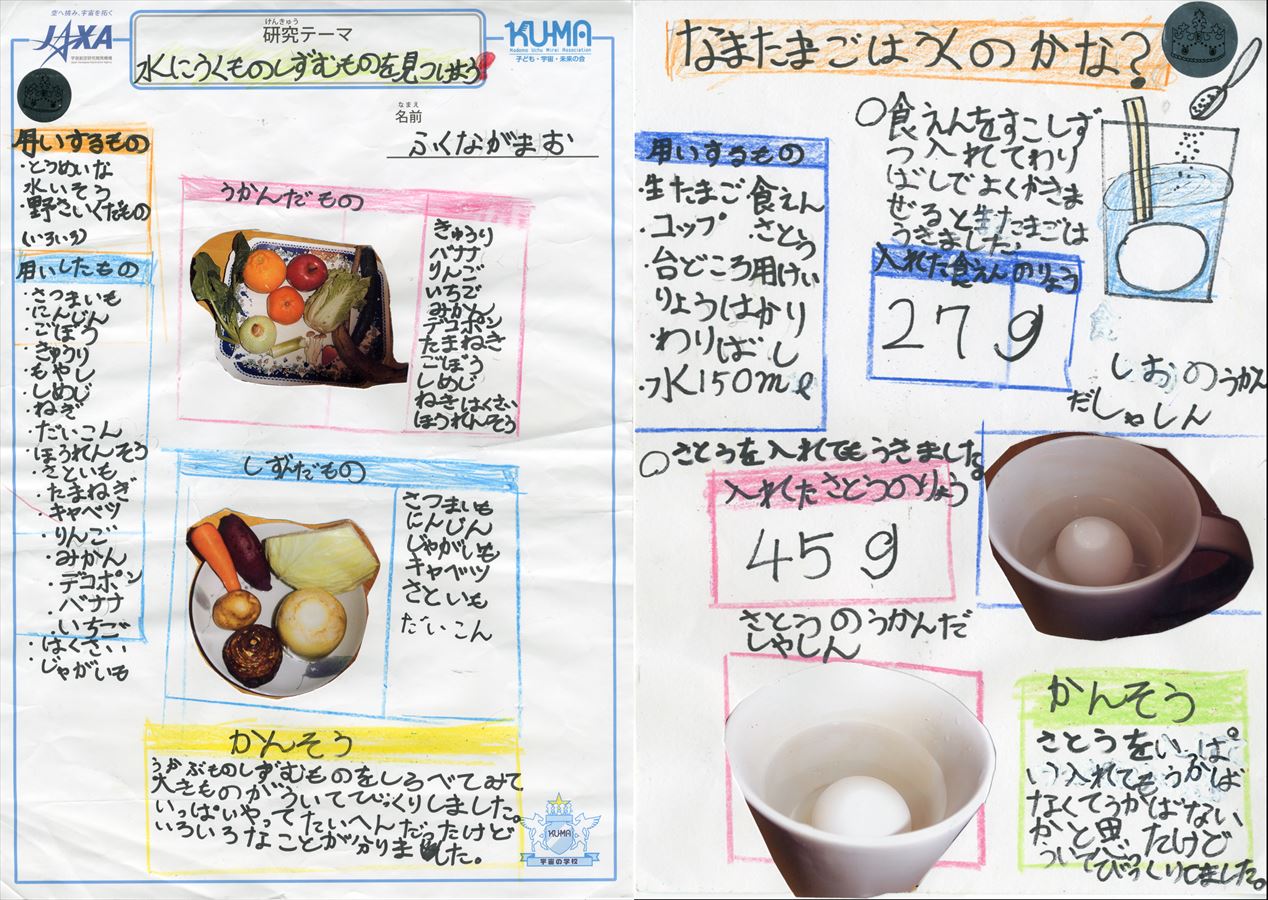 空へ挑み、宇宙を拓く
JAXA
宇宙航空研究開発機構
Japan Aerospace Exploration Agency
けんきゅう
研究テーマ
水にうくものしずむものを見つけよう!
KUMA
Kodomo Uchu Mirai Association
子ども・宇宙・未来の会
なまえ
名前
ふくながまお
用いするもの
・とうめいな
水いそう
・野さいくだもの
(いろいろ)
用いしたもの
・さつまいも
・にんじん
・ごぼう
・きゅうり
・もやし
・しめじ
・ねぎ
・だいこん
・ほうれんそう
・さといも
・たまねぎ
・キャベツ
・りんご
・みかん
・デコポン
・バナナ
・いちご
・はくさい
・じゃがいも
うかんだもの
きゅうり
バナナ
りんご
いちご
みかん
デコポン
たまねぎ
ごぼう
しめじ
ねぎはくさい
ほうれんそう
しずんだもの
さつまいも
にんじん
じゃがいも
キャベツ
さといも
だいこん
かんそう
うかぶものしずむものをしらべてみて
大きものがういてびっくりしました。
いっぱいやってたいへんだったけど
いろいろなことが分りました。
KUMA
宇宙の学校
なまたまごはうくのかな?
用いするもの
・生たまご・食えん
・コップ ・さとう
・台どころ用けい
りょうはかり
・わりばし
・水150ml
○食えんをすこしず
つ入れてわり
ばしでよくかきま
ぜると生たまごは
うきました。
入れた食えんのりょう
27g
しおのうかん
だしゃしん
○さとうを入れてもうきました。
入れたさとうのりょう
45g
さとうのうかんだ
しゃしん
かんそう
さとうをいっぱ
い入れてもうかば
なくてうかばない
かと思たけど
ういてびっくりてました。